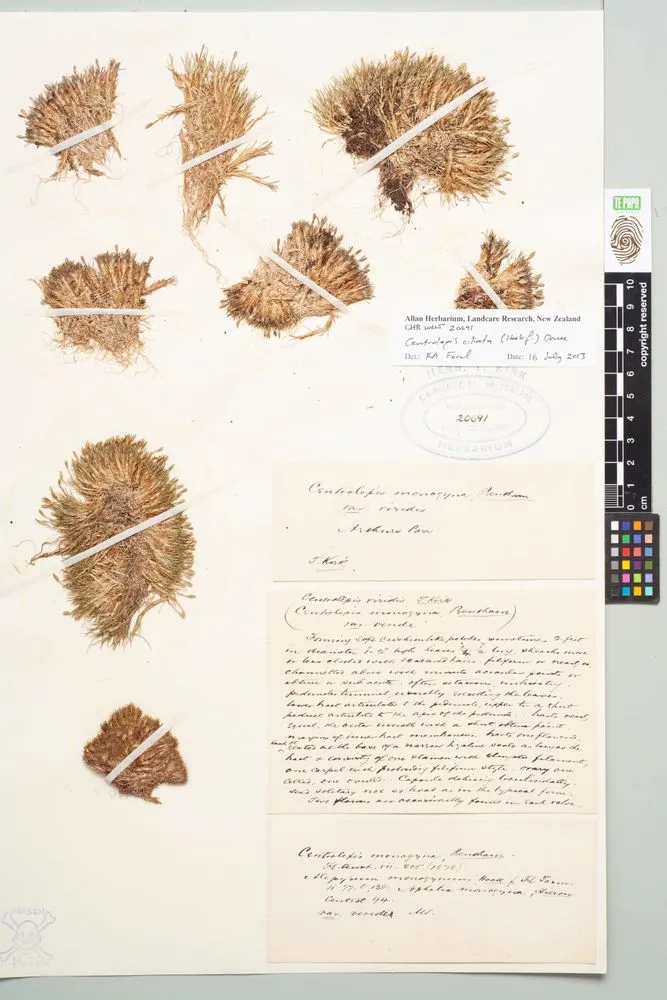 TE PAPA
copyright reserved
10
9
8
7
6
5
4
3
2
1
0
cm
Allan Herbarium, Landcare Research, New Zealand
CHR WELT 20691
Centrolepis ciliata (Hook.f.) Druce
Det.: KA Ford Date: 16 July 2013
HERB. T. KIRK
DOMINION MUSEUM
20691
HERBARIUM
Centrolepis monogyna, Bentham
var. viridis
Arthurs Pass
T. Kirk
Centrolepis viridis T. Kirk
(Centrolepis monogyna, Bentham)
var. viride
Forming soft cushionlike patches sometimes 2 feet
in diameter high leaves long sheaths more
or less clothed with hairs filiform or
channelled above with minute acicular points or
obtuse or sub acute, often setaceous,
peduncles terminal, usually exceeding the leaves,
lower bract articulate to the peduncle, upper to a short
pedicel articulate to the apex of the peduncle. bracts
equal, the outer with a short obtuse point
margins of inner bract membranous.
seated at the base of a narrow hyaline scale as long as the
bract & consisting of one stamen with filament,
one carpel with protruding filiform style. ovary one
celled, one ovule. Capsule dehiscing
seed solitary not so broad as in the typical form.
Two flowers are occasionally found in each
Centrolepis monogyna, Bentham.
Fl. Aust. vii. 205 (1878)
Alepyrum monogynum, Hook f. Fl. Tasm.
Aphelia monogyna,
94.
var. viridis Ms.
POISON